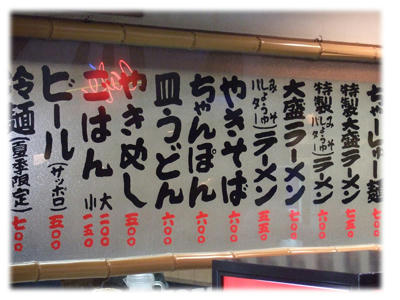 ちゃーしゅー麺 七〇〇
特製大盛ラーメン 七五〇
特製みそ しょうゆ バターラーメン 六〇〇
大盛ラーメン 七〇〇
みそ しょうゆ バターラーメン 五五〇
やきそば 六〇〇
ちゃんぽん 六〇〇
皿うどん 六〇〇
やきめし 五〇〇
ごはん 大 二〇〇 小 一五〇
ビール(サッポロ) 五〇〇
冷麺(夏季限定) 七〇〇